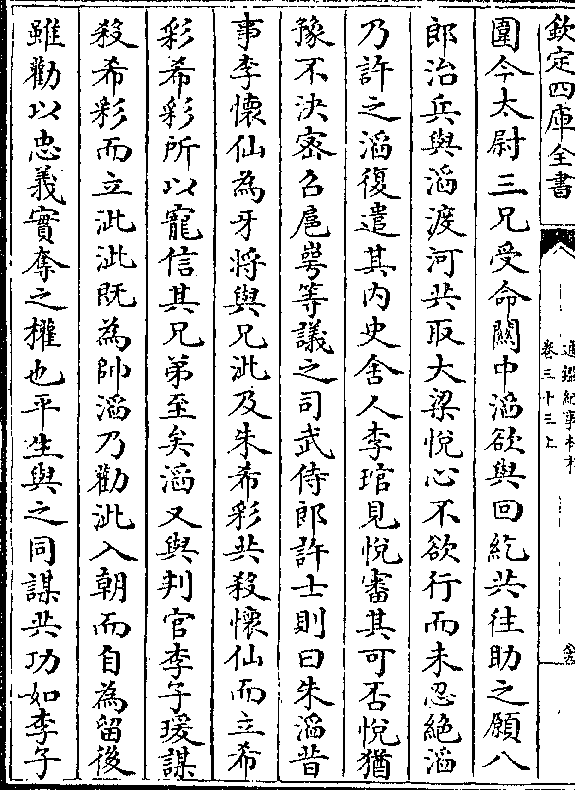 欽定四庫全書
通鑑紀事本末
卷三十三上
圍今太尉三兄受命關中滔欲與回紇共往助之願八
郎治兵與滔渡河共取大梁悅心不欲行而未忍絕滔
乃許之滔復遣其內史舍人李琯見悅審其可否悅猶
豫不決密召扈崿等議之司武侍郎許士則曰朱滔昔
事李懷仙為牙將與兄泚及朱希彩共殺懷仙而立希
彩希彩所以寵信其兄弟至矣滔又與判官李子瑗謀
殺希彩而立泚泚既為帥滔乃勸泚入朝而自為留後
雖勸以忠義實奪之權也平生與之同謀共功如李子